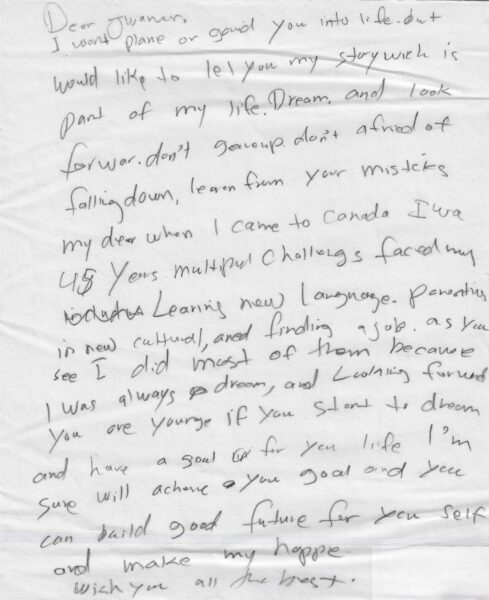 Dear Jwaners,
I wont plane or gauid you into life. but
would like to let you my story wich is
part of my life. Dream, and look
forwar. don't geveup. don't afried of
falling down, learen from your misteks
my dear when I came to Canada I wa
45 Years. multipul challengs faced my
Learning new language. parenting
in new cultural, and finding a job. as you
see I did most of them because
I was always dream, and Looking forward
you are younge if you start to dream
and have a goal for you life I'm
sure will achave you goal and you
can build good future for you self
and make my happe.
wich you all the best.